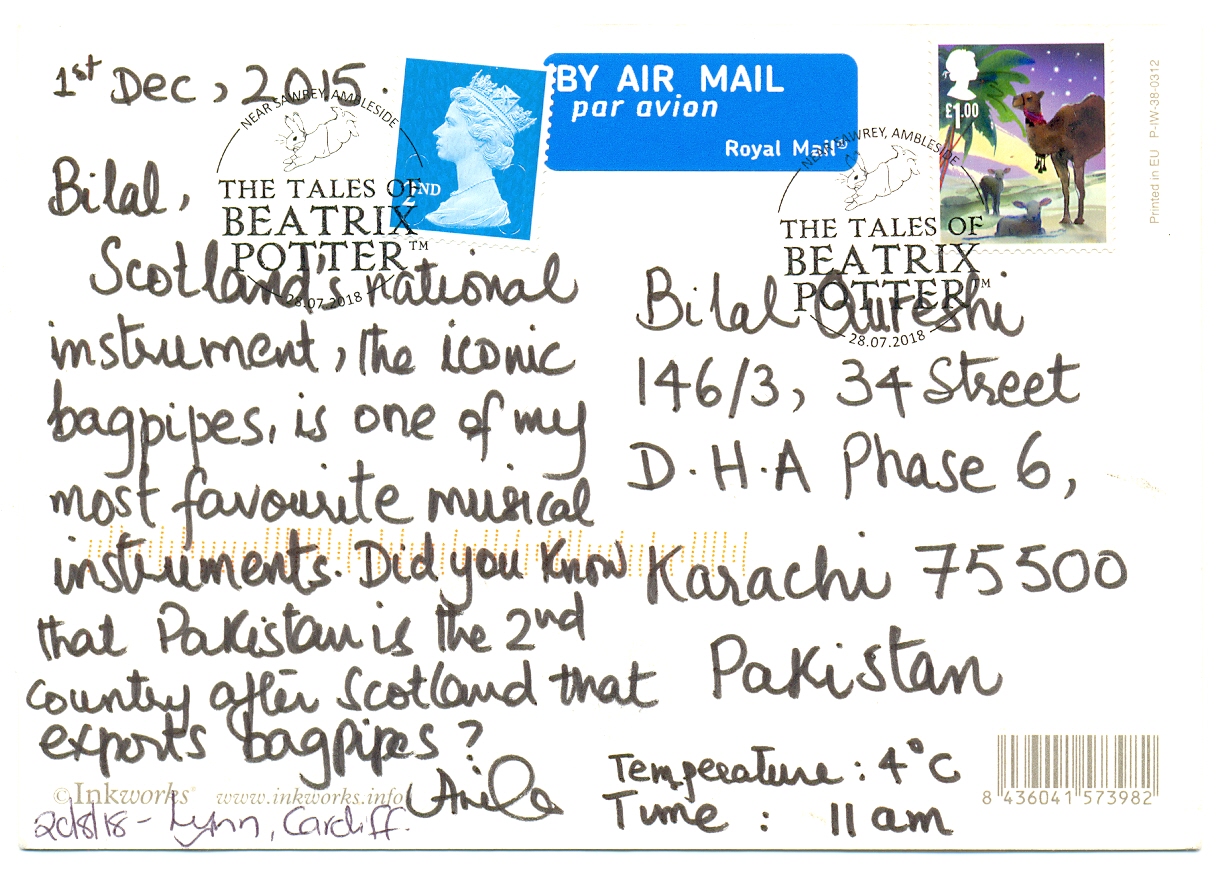 1st Dec, 2015.
NEAR SAWREY, AMBLESIDE
THE TALES OF
BEATRIX
POTTER™
28.07.2018
2ND
BY AIR MAIL
par avion
Royal Mail®
£1.00
NEAR SAWREY, AMBLESIDE
THE TALES OF
BEATRIX
POTTER™
28.07.2018
Printed in EU P-IW-38-0312
Bilal,
Scotland's national
instrument, the iconic
bagpipes, is one of my
most favourite musical
instruments. Did you know
that Pakistan is the 2nd
country after Scotland that
exports bagpipes?
Anila
Bilal Qureshi
146/3, 34 Street
D.H.A Phase 6,
Karachi 75500
Pakistan
Temperature: 4°C
Time: 11am
8 436041 573982
©Inkworks® www.inkworks.info
Lynn, Cardiff.